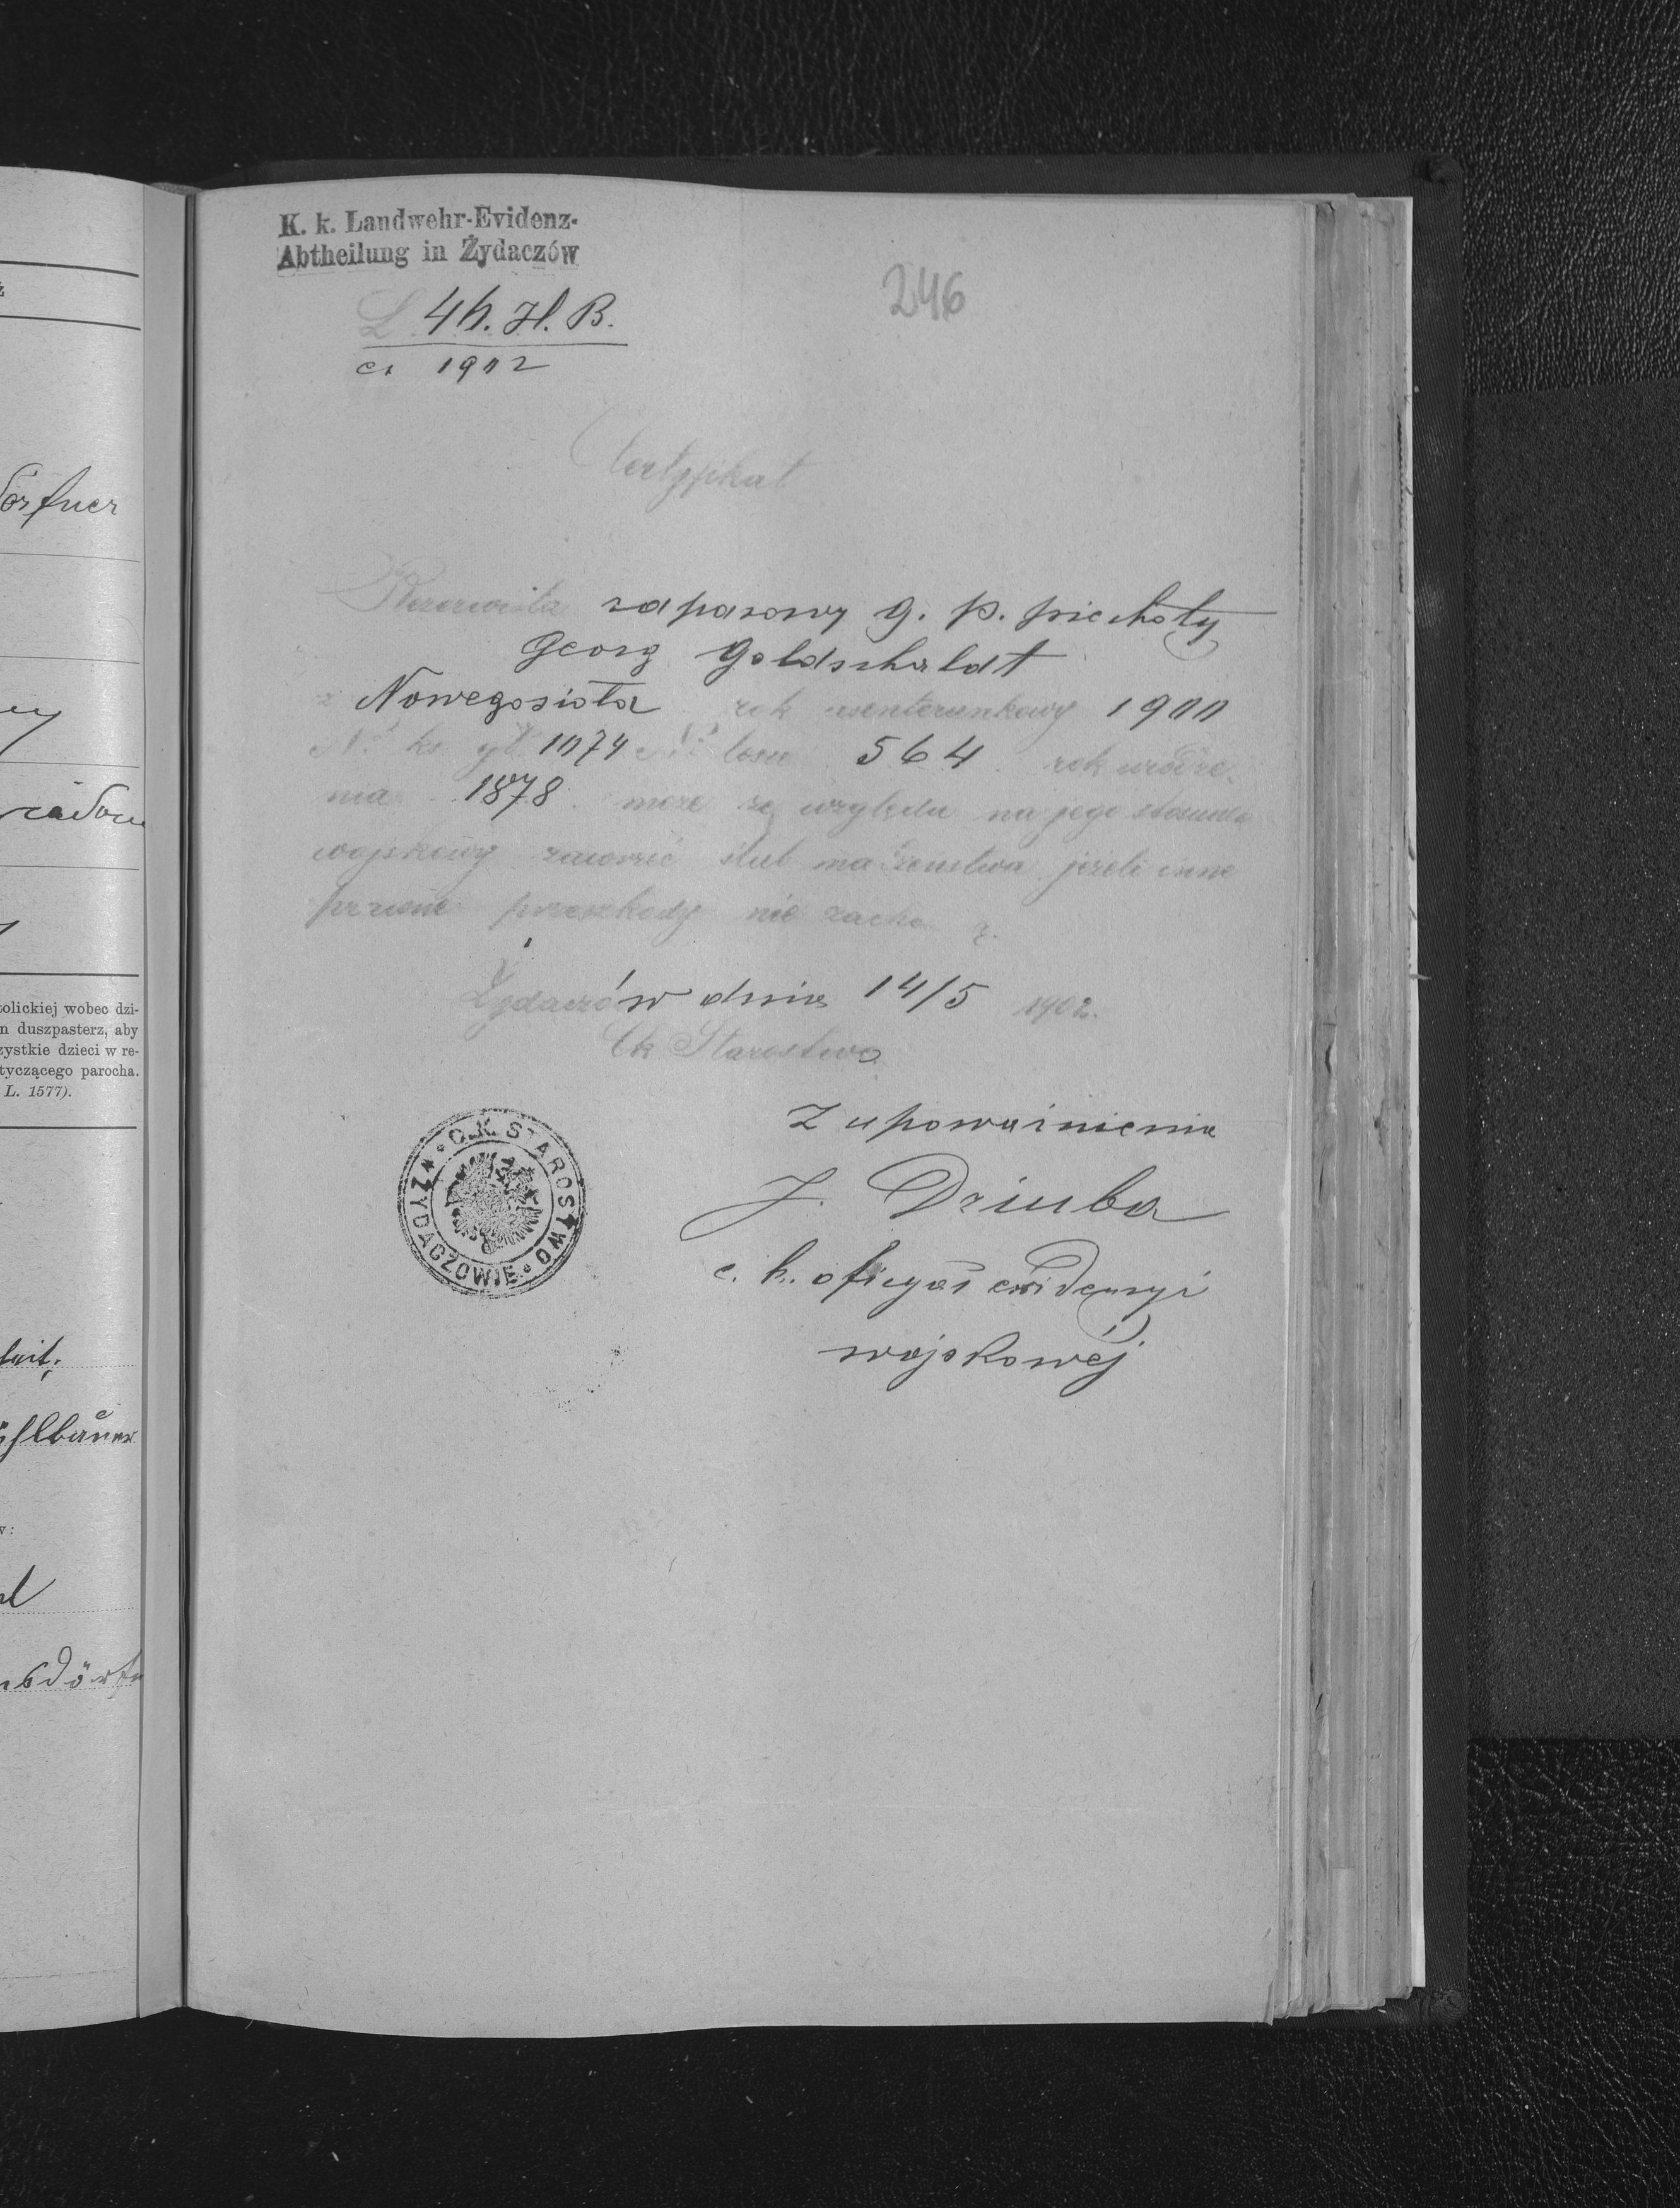 K. k. Landwehr-Evidenz-
Abtheilung in Żydaczów
246
L 4h. H. B.
ex 1902
Certyfikat
Rezerwista zapasowy 9. p. piechoty
Georg Goldschaldt
z Nowegosioła rok asenterunkowy 1900
1074 losu 564 rok urodze-
nia 1878 może ze względu na jego stosunek
wojskowy zawrzeć ślub małżeństwa jeżeli inne
prawne przeszkody nie
Żydaczów dnia 14/5 1902.
Ck Starostwo
Z upoważnienia
J. Dziuba
c. k. oficyał ewidencyi
wojskowéj
C. K. STAROSTWO W ŻYDACZOWIE
orfner
olickiej wobec dzi-
n duszpasterz, aby
zystkie dzieci w re-
tyczącego parocha.
L. 1577).